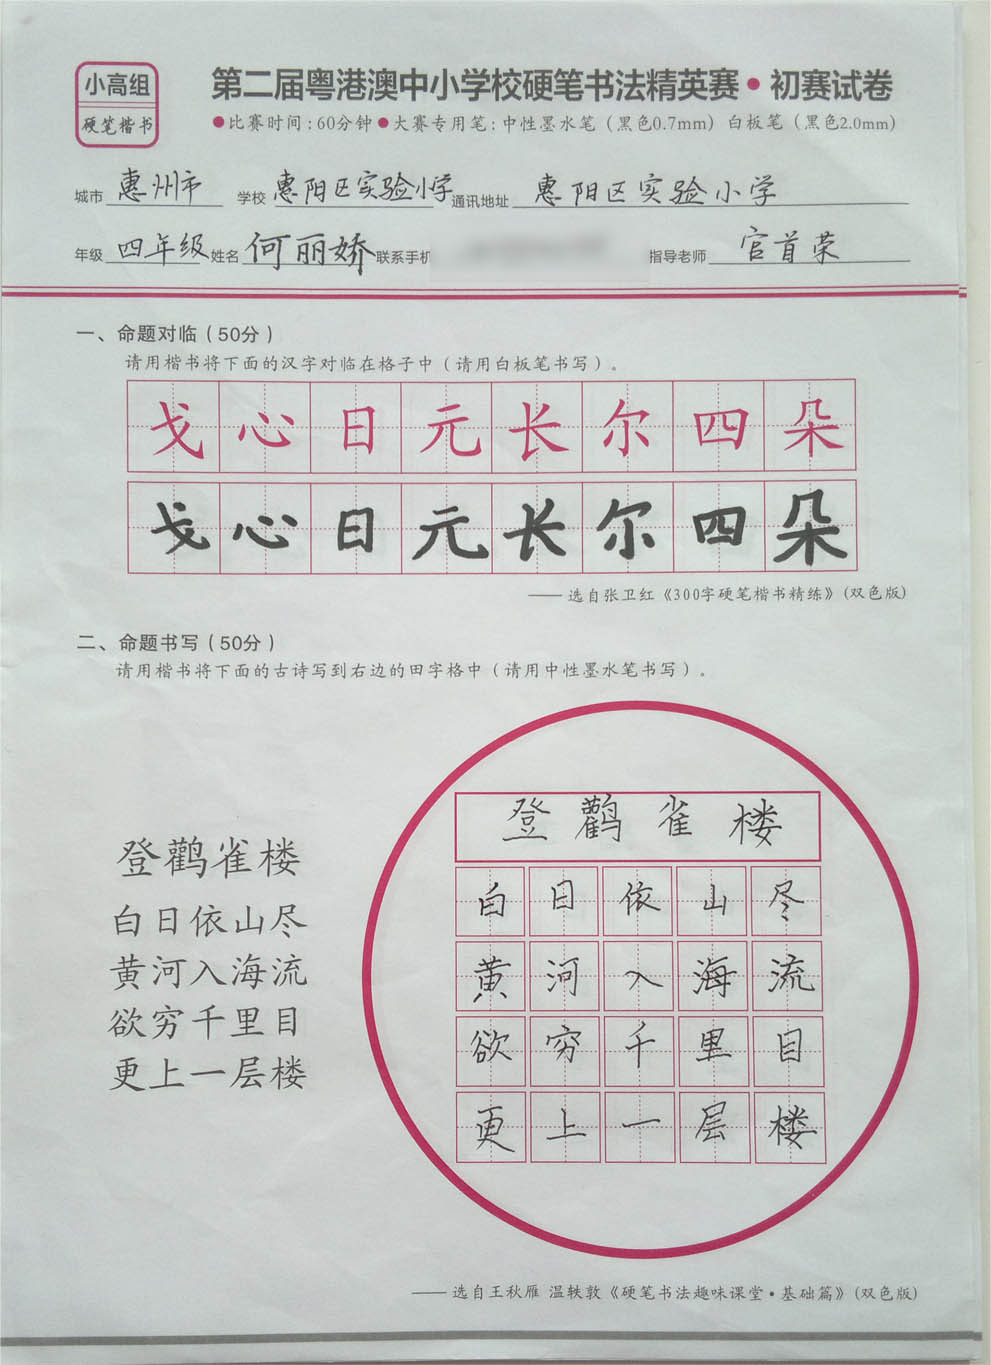 小高组
硬笔楷书
第二届粤港澳中小学校硬笔书法精英赛•初赛试卷
●比赛时间:60分钟●大赛专用笔:中性墨水笔（黑色0.7mm）白板笔（黑色2.0mm）
城市 惠州市 学校 惠阳区实验小学 通讯地址 惠阳区实验小学
年级 四年级 姓名 何丽娇 联系手机 指导老师 官首荣
一、命题对临（50分）
请用楷书将下面的汉字对临在格子中（请用白板笔书写）。
戈心日元长尔四朵
戈心日元长尔四朵
—— 选自张卫红《300字硬笔楷书精练》(双色版)
二、命题书写（50分）
请用楷书将下面的古诗写到右边的田字格中（请用中性墨水笔书写）。
登鹳雀楼
白日依山尽
黄河入海流
欲穷千里目
更上一层楼
登鹳雀楼
白日依山尽
黄河入海流
欲穷千里目
更上一层楼
—— 选自王秋雁 温轶敦《硬笔书法趣味课堂•基础篇》(双色版)